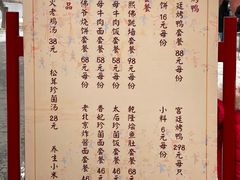 烤鸭
宫廷烤鸭套餐 88元每份
饼 16元每份
套餐
熙佛跳墙套餐 98元每份
母牛肉饭套餐 68元每份
母牛肉面套餐 58元每份
佛爷烧饼套餐 68元每份
火老鸡汤 38元
宫廷烤鸭 298元每只
小料 6元每份
乾隆烩鱼肚套餐 68元
香妃珍菌面套餐 46
太后珍菌饭套餐 46
老北京炸酱面套餐 46
松茸珍菌汤 28元
养生小米